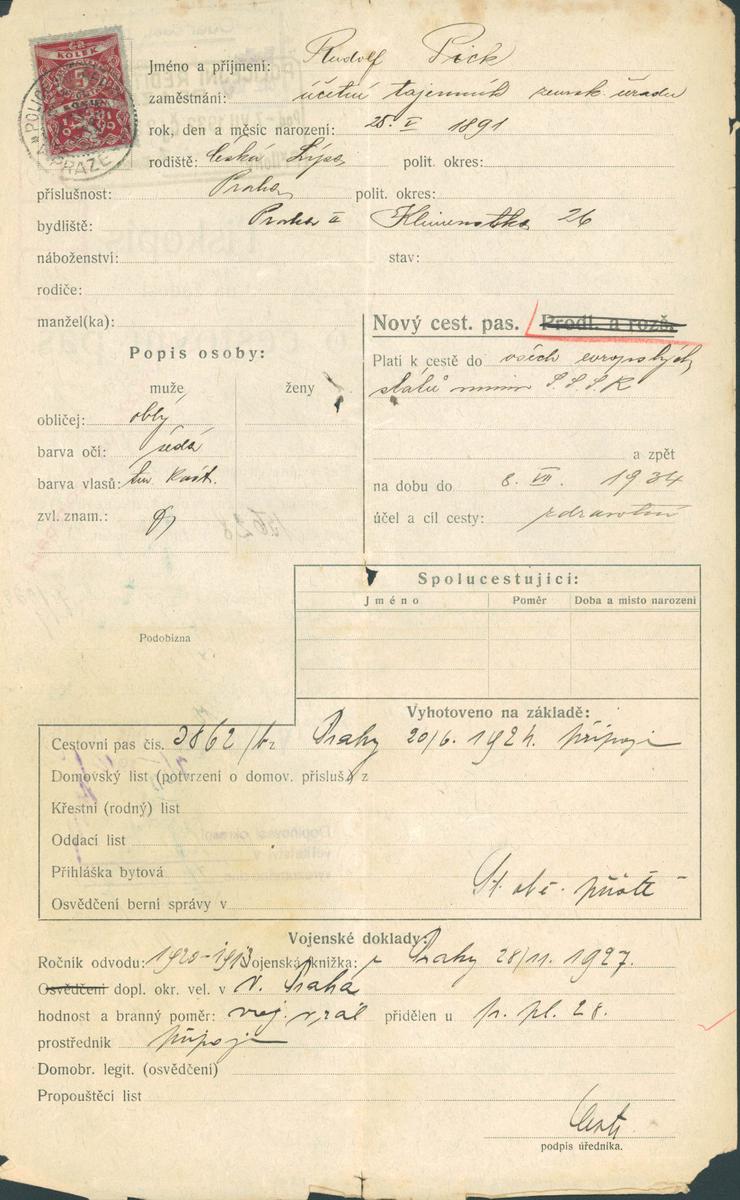 KOLEK
5
PRAZE
Jméno a příjmení: Rudolf Pick
zaměstnání: účetní tajemník zemsk. úřadu
rok, den a měsíc narození: 25. V 1891
rodiště: Česká Lípa polit. okres:
příslušnost: Praha polit. okres:
bydliště: Praha II Klimentská 26
náboženství: stav:
rodiče:
manžel(ka):
Nový cest. pas. Prodl. a rozš.
Platí k cestě do všech evropských
států mimo S.S.S.R
a zpět
na dobu do 8. VII. 1934
účel a cíl cesty: zdravotní
Popis osoby:
muže ženy
obličej: oblý
barva očí: šedá
barva vlasů: tm. kašt.
zvl. znam.:
Podobizna
Spolucestující:
Jméno Poměr Doba a místo narození
Vyhotoveno na základě:
Cestovní pas čís. 3862 Prahy 20/6. 192 připoj
Domovský list (potvrzení o domov. přísluš.) z
Křestní (rodný) list
Oddací list
Přihláška bytová
Osvědčení berní správy v
St. obč. příště
Vojenské doklady:
Ročník odvodu: 1920-1913 Vojenská knížka: Prahy 28/11. 1927.
Osvědčení dopl. okr. vel. v V. Praha
hodnost a branný poměr: voj. v zál přidělen u p. pl. 28.
prostředník připoj
Domobr. legit. (osvědčení)
Propouštěcí list
podpis úředníka.